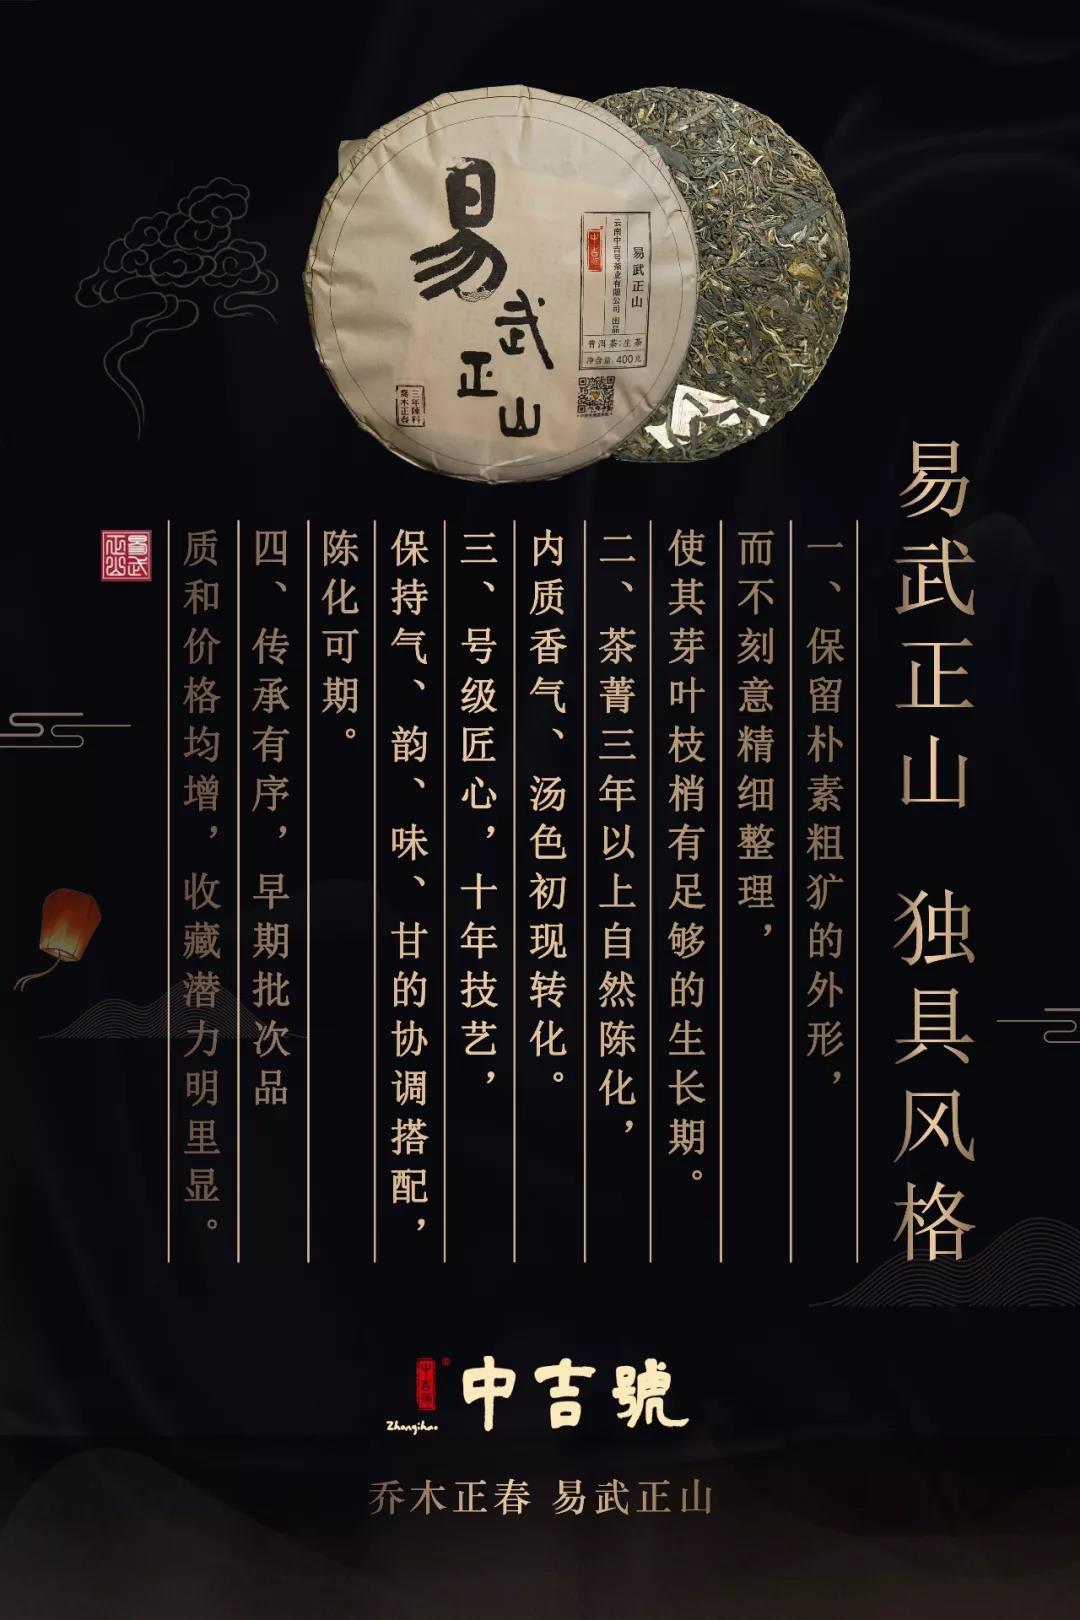 易
武
正
山
易武正山
云南中吉号茶业有限公司 出品
中吉号
普洱茶：生茶
净含量：400克
三年陈料
乔木正春
易武正山 独具风格
一、保留朴素粗犷的外形，
而不刻意精细整理，
使其芽叶枝梢有足够的生长期。
二、茶菁三年以上自然陈化，
内质香气、汤色初现转化。
三、号级匠心，十年技艺，
保持气、韵、味、甘的协调搭配，
陈化可期。
四、传承有序，早期批次品
质和价格均增，收藏潜力明里显。
易武正山
中吉號
®
Zhongjihao
中吉號
乔木正春 易武正山